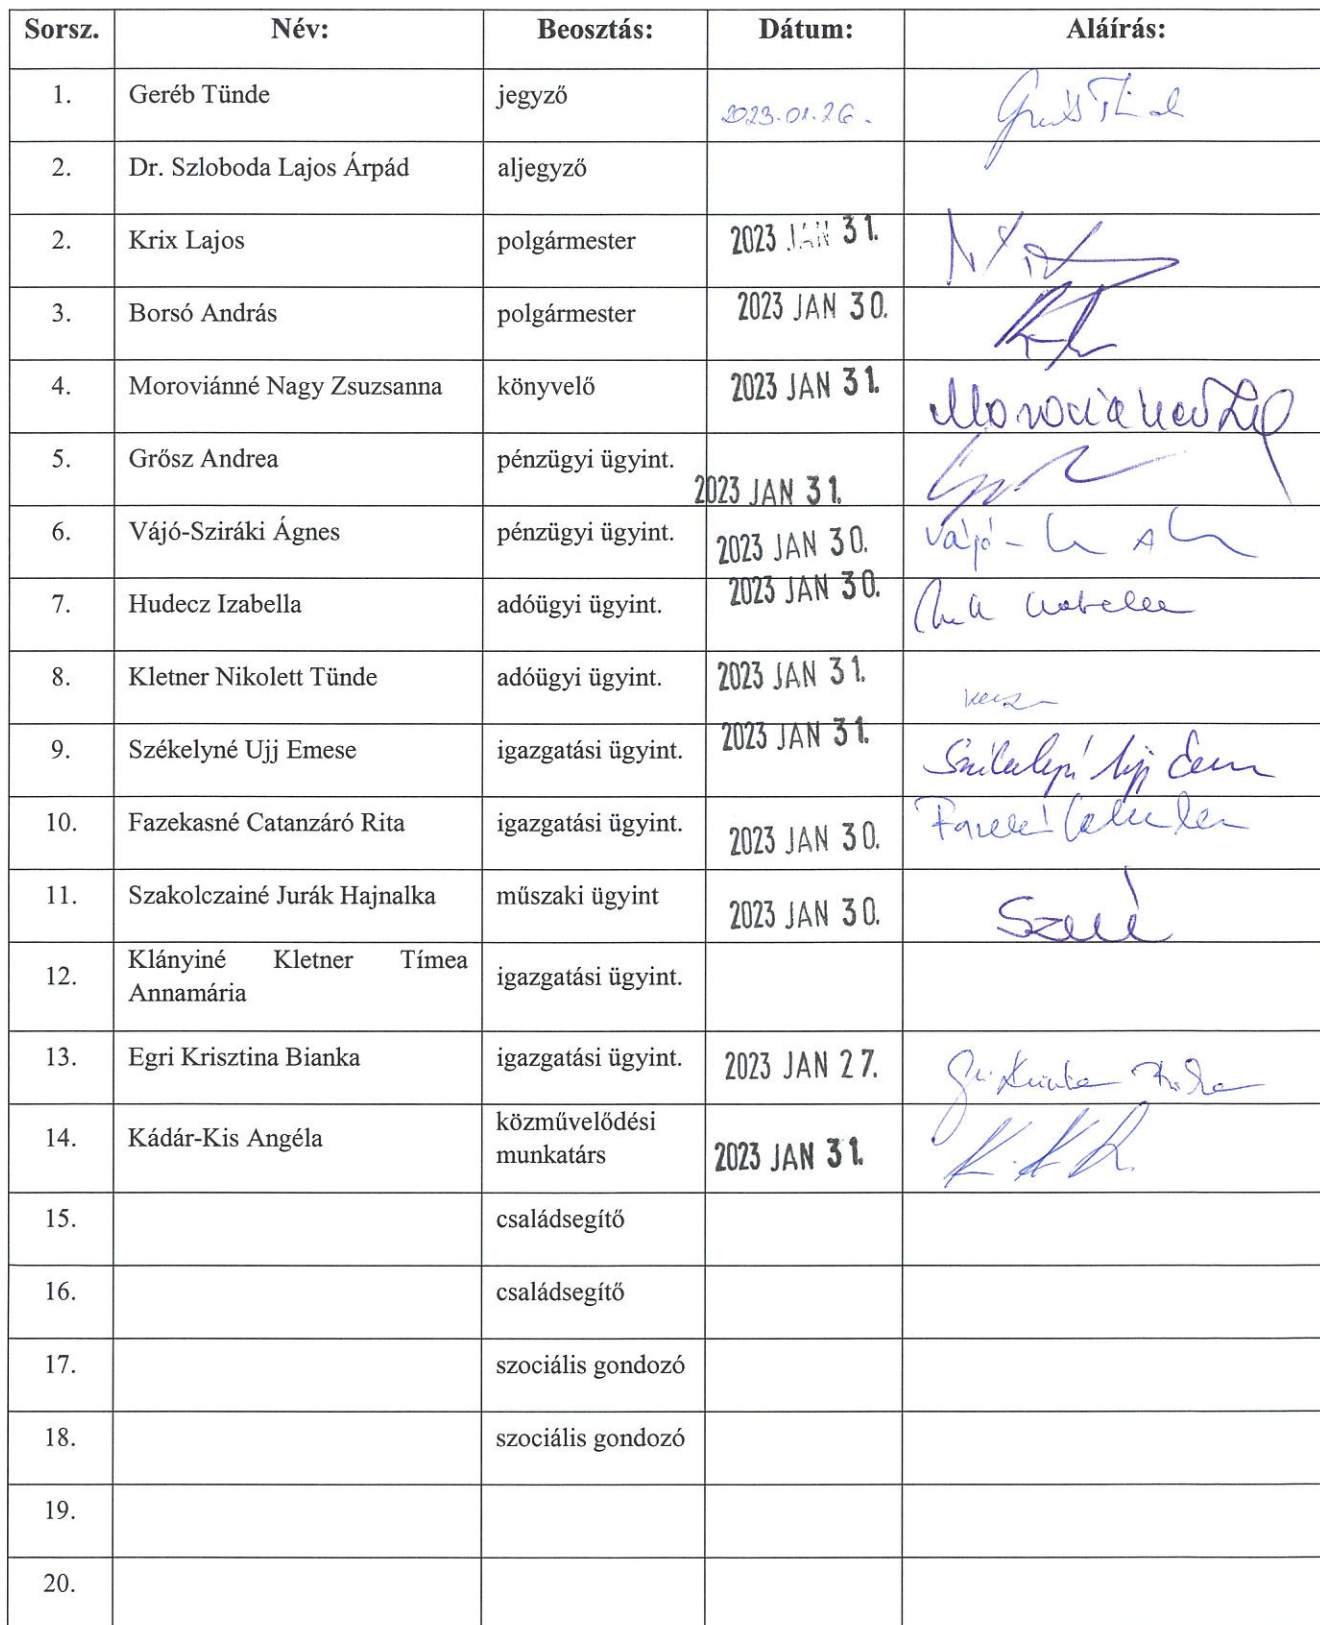 Sorsz. Név: Beosztás: Dátum: Aláírás:
1. Geréb Tünde jegyző 2023.01.26.
2. Dr. Szloboda Lajos Árpád aljegyző
2. Krix Lajos polgármester 2023 JAN 31.
3. Borsó András polgármester 2023 JAN 30.
4. Moroviánné Nagy Zsuzsanna könyvelő 2023 JAN 31.
5. Grősz Andrea pénzügyi ügyint. 2023 JAN 31.
6. Vájó-Sziráki Ágnes pénzügyi ügyint. 2023 JAN 30. Vájó-
7. Hudecz Izabella adóügyi ügyint. 2023 JAN 30.
8. Kletner Nikolett Tünde adóügyi ügyint. 2023 JAN 31.
9. Székelyné Ujj Emese igazgatási ügyint. 2023 JAN 31.
10. Fazekasné Catanzáró Rita igazgatási ügyint. 2023 JAN 30.
11. Szakolczainé Jurák Hajnalka műszaki ügyint 2023 JAN 30.
12. Klányiné Kletner Tímea
Annamária igazgatási ügyint.
13. Egri Krisztina Bianka igazgatási ügyint. 2023 JAN 27.
14. Kádár-Kis Angéla közművelődési
munkatárs 2023 JAN 31.
15. családsegítő
16. családsegítő
17. szociális gondozó
18. szociális gondozó
19.
20.